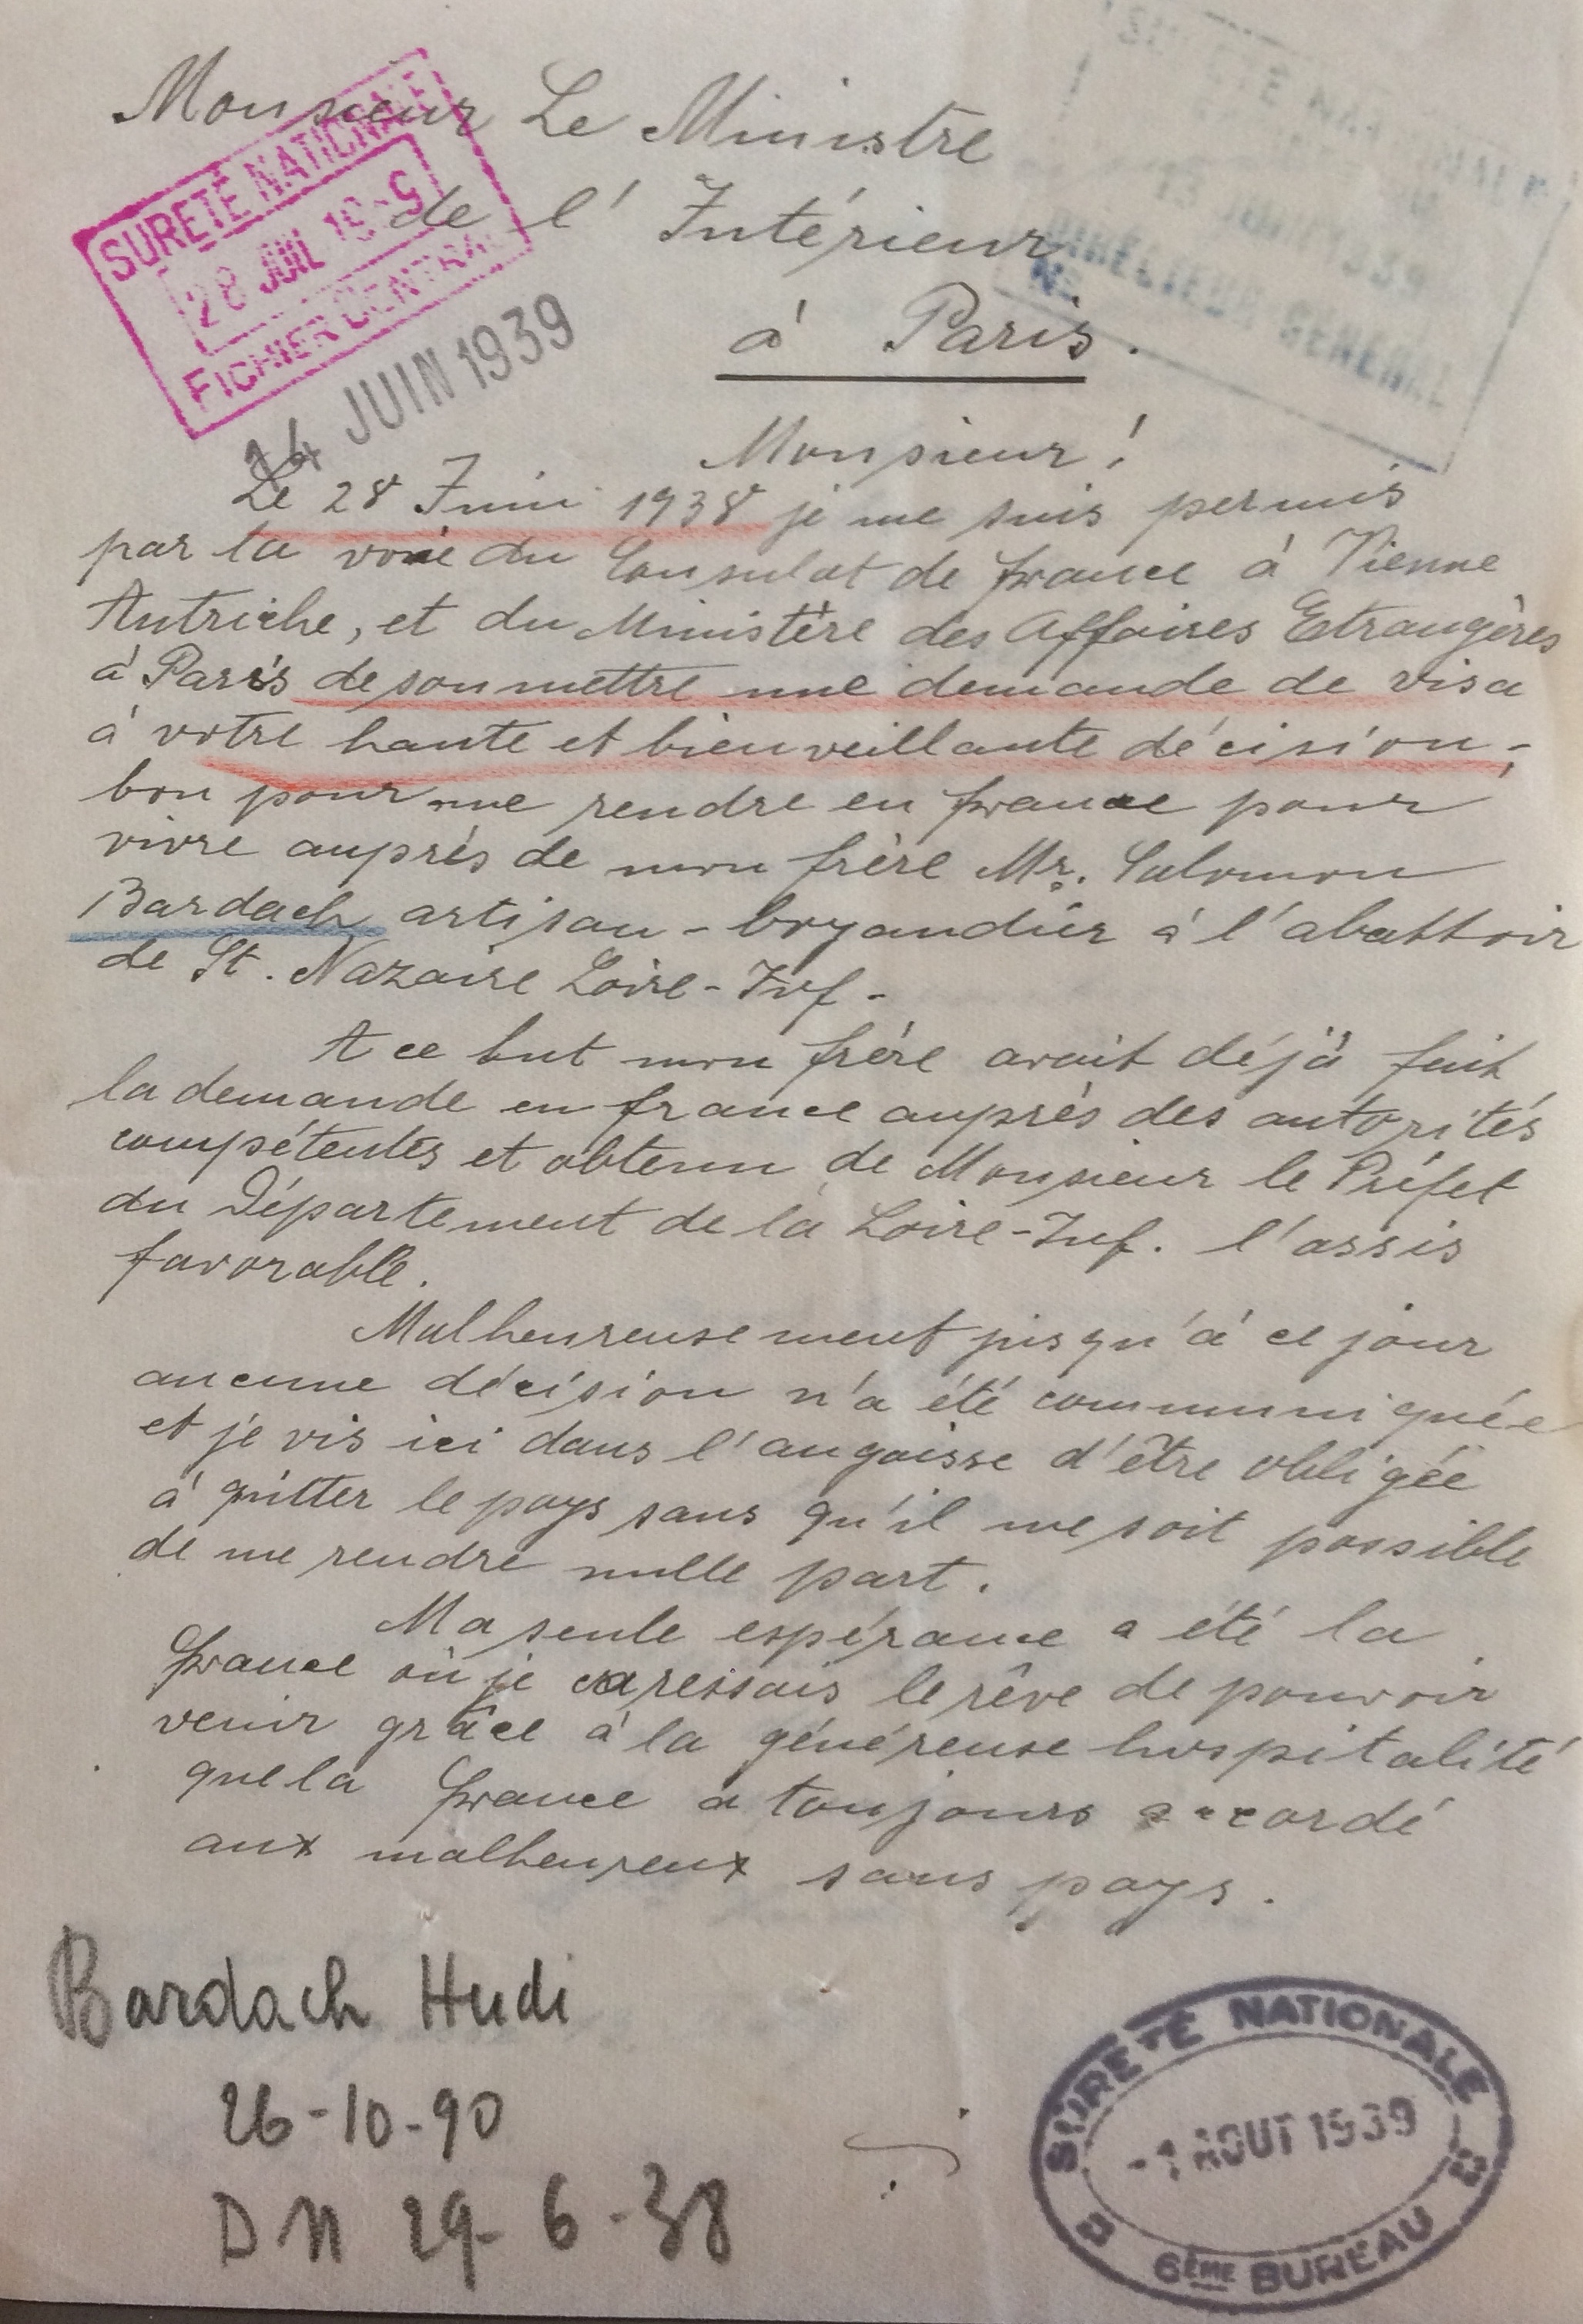 Monsieur Le Ministre
de l'Intérieur
à Paris.
SURETÉ NATIONALE
28 JUIL
FICHIER CENTRAL
14 JUIN 1939
DIRECTEUR GÉNÉRAL
Monsieur!
Le 28 Juin 1938 je me suis permis
par la voie du Consulat de france à Vienne
Autriche, et du Ministère des Affaires Etrangères
à Paris de soumettre une demande de visa
à votre haute et bienveillante décision;
bon pour me rendre en france pour
vivre auprès de mon frère Mr. Salomon
Bardach artisan-boyandier à l'abattoir
de St. Nazaire Loire-Inf-
A ce but mon frère avait déjà fait
la demande en france auprès des autorités
compétentes et obtenu de Monsieur le Préfet
du Département de la Loire-Inf. l'assis
favorable.
Malheureusement jusqu'à ce jour
aucune décision n'a été communiquée
et je vis ici dans l'angoisse d'être obligée
à quitter le pays sans qu'il me soit possible
de me rendre nulle part.
Ma seule espérance a été la
france où je caressais le rêve de pouvoir
venir grâce à la généreuse hospitalité
que la france a toujours accordé
aux malheureux sans pays.
Bardach Hudi
26-10-90
DN 29-6-38
SÛRETÉ NATIONALE
-1 AOUT 1939
6ÈME BUREAU